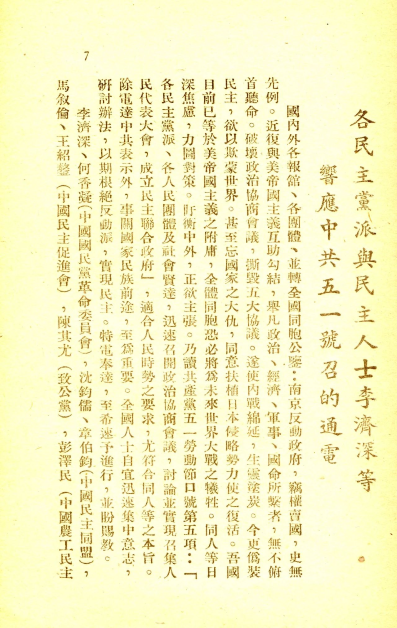 各民主黨派與民主人士李濟深等
響應中共五一號召的通電
國內外各報館、各團體、並轉全國同胞公鑒：南京反動政府，竊權賣國，史無
先例。近復與美帝國主義互助勾結，舉凡政治、經濟、軍事、國命所繫者，無不俯
首聽命。破壞政治協商會議，撕毀五大協議。遂使內戰綿延，生靈塗炭。今更僞裝
民主，欲以欺蒙世界。甚至忘國家之大仇，同意扶植日本侵略勢力使之復活。吾國
目前已等於美帝國主義之附庸，全體同胞恐必將爲未來世界大戰之犧牲。同人等日
深焦慮，力圖對策。盱衡中外，正欲主張。乃讀共產黨五一勞動節口號第五項：「
各民主黨派、各人民團體及社會賢達，迅速召開政治協商會議，討論並實現召集人
民代表大會，成立民主聯合政府」，適合人民時勢之要求，尤符合同人等之本旨。
除電達中共表示外，事關國家民族前途，至爲重要。全國人士自宜迅速集中意志，
研討辦法，以期根絕反動派，實現民主。特電奉達，至希速予進行，並盼賜教。
李濟深、何香凝(中國國民黨革命委員會)，沈鈞儒、章伯鈞(中國民主同盟)，
馬敘倫、王紹鏊(中國民主促進會)，陳其尤(致公黨)，彭澤民(中國農工民主
7